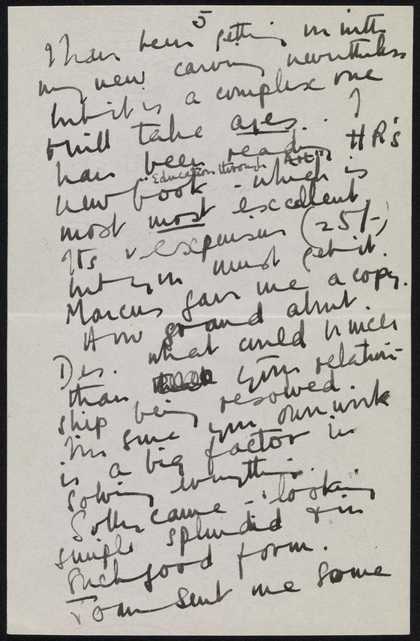 5
I have been getting on with
my new carving nevertheless
but it is a complex one
& will take ages. I
have been reading HR's
"Education through Art"
new book - which is
most most excellent
Its v expensive (25/-)
but you must get it.
Marcus gave me a copy.
How grand about
Des. What could be nicer
than your relation-
ship being resolved.
I'm sure your own work
is a big factor in
solving everything.
Solly came - looking
simply splendid & in
such good form.
Tom sent me some